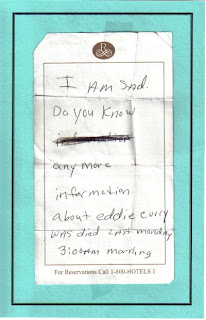 I AM SAD.
Do you know
any more
information
about eddie curry
WAS died Last monday
3:00AM morning
For Reservations Call 1-800-HOTELS 1